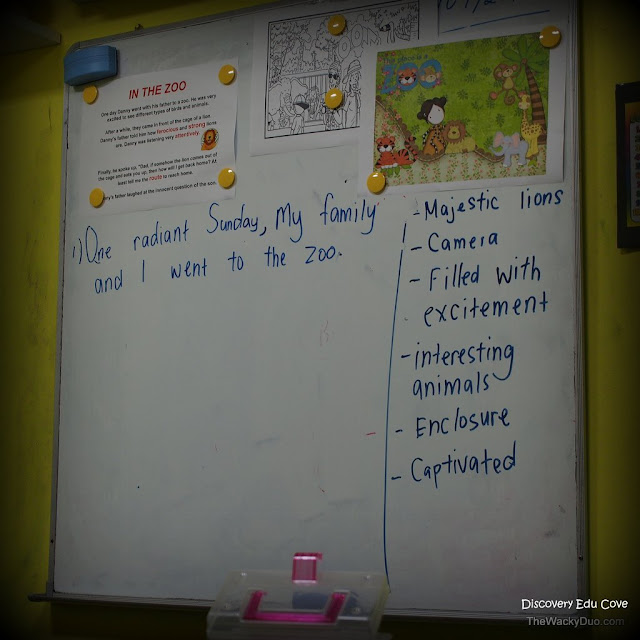 IN THE ZOO
One day Danny went with his father to a zoo. He was very
excited to see different types of birds and animals.
After a while, they came in front of the cage of a lion
Danny's father told him how ferocious and strong lions
are. Danny was listening very attentively.
Finally, he spoke up, "Dad, if somehow the lion comes out of
the cage and eats you up, then how will I get back home? At
least tell me the route to reach home.
father laughed at the innocent question of the son.
ZOO
1) One radiant Sunday, My family
and I went to the zoo.
- Majestic lions
- Camera
- Filled with
excitement
- interesting
animals
- Enclosure
- Captivated
Discovery Edu Cove
TheWackyDuo.com